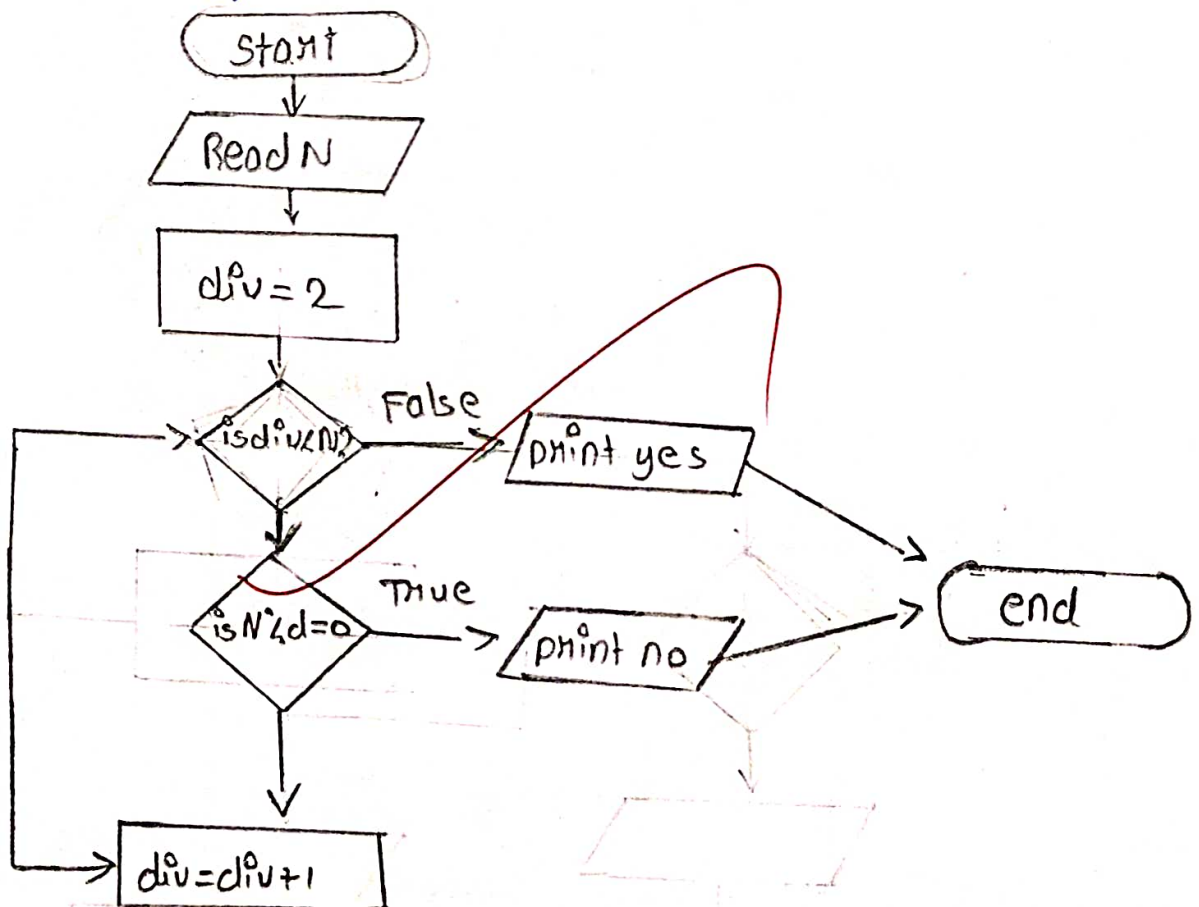 Start
Read N
div = 2
is div < N?
False
print yes
is N % d = 0
True
print no
end
div = div + 1